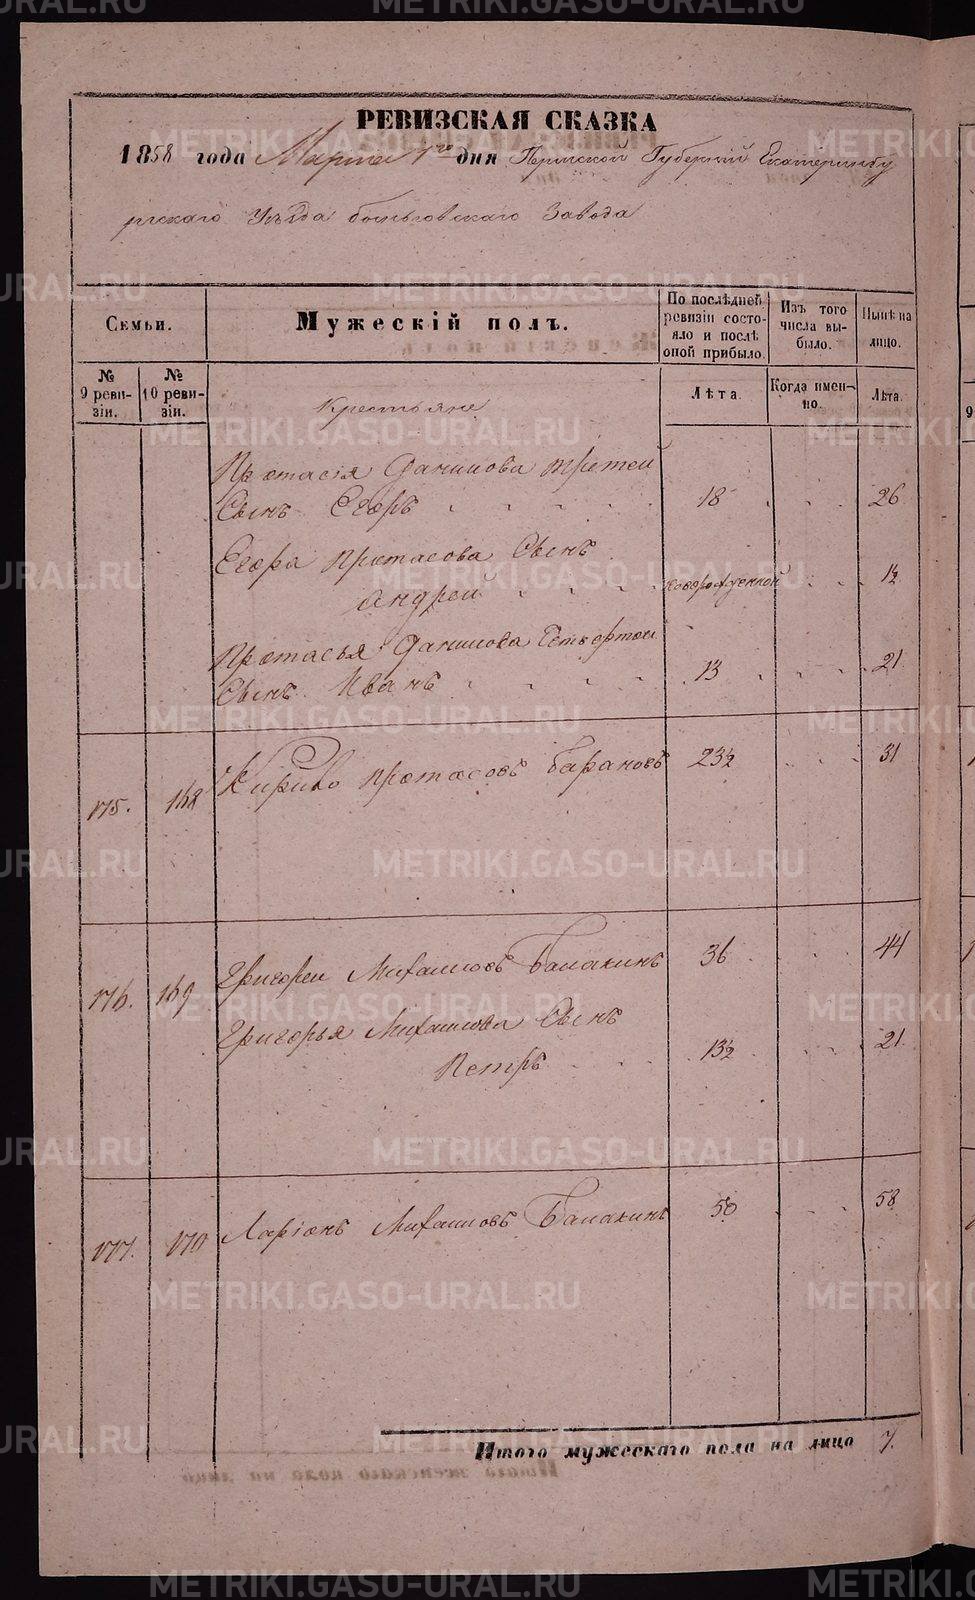 РЕВИЗСКАЯ СКАЗКА
1858 года Марта 1го дня Пермской Губерніи Екатеринбу
ргскаго Уѣзда Завода
Семьи.
Мужескій полъ.
По послѣдней ревизіи состояло и послѣ оной прибыло.
Изъ того числа выбыло.
Нынѣ на лицо.
№ 9 ревизіи.
№ 10 ревизіи.
Лѣта.
Когда именно.
Лѣта.
Крестьяне
Протасія Данилова третей
Сынъ Егоръ 18 26
Егора Протасова Сынъ
Андрей новорожденной 1½
Протасья Данилова Четвертои
Сынъ Иванъ 13 21
175. 168 Кирило Протасовъ Барановъ 23½ 31
176. 169 Григореи Михаиловъ Балакинъ 36 44
Григорья Михаилова Сынъ
Петръ 13½ 21
177. 170 Ларіонъ Михаиловъ Балакинъ 50 58
Итого мужескаго пола на лицо 7.
METRIKI.GASO-URAL.RU